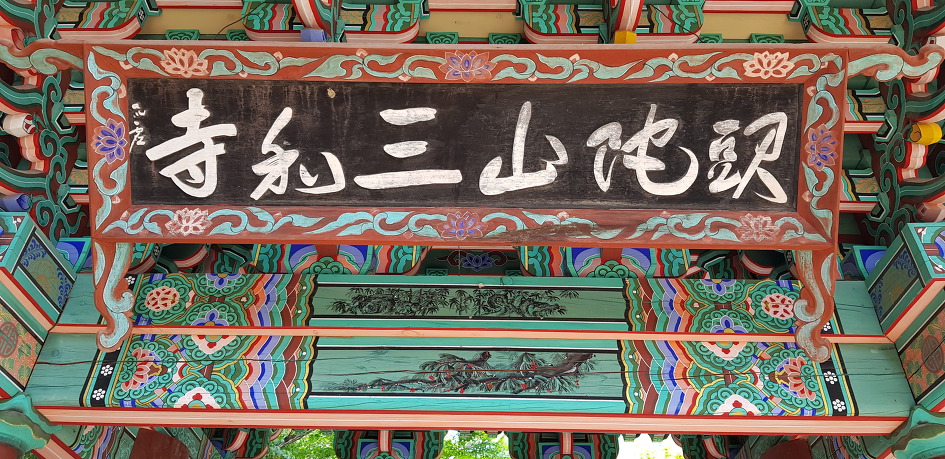 頭陀山三和寺